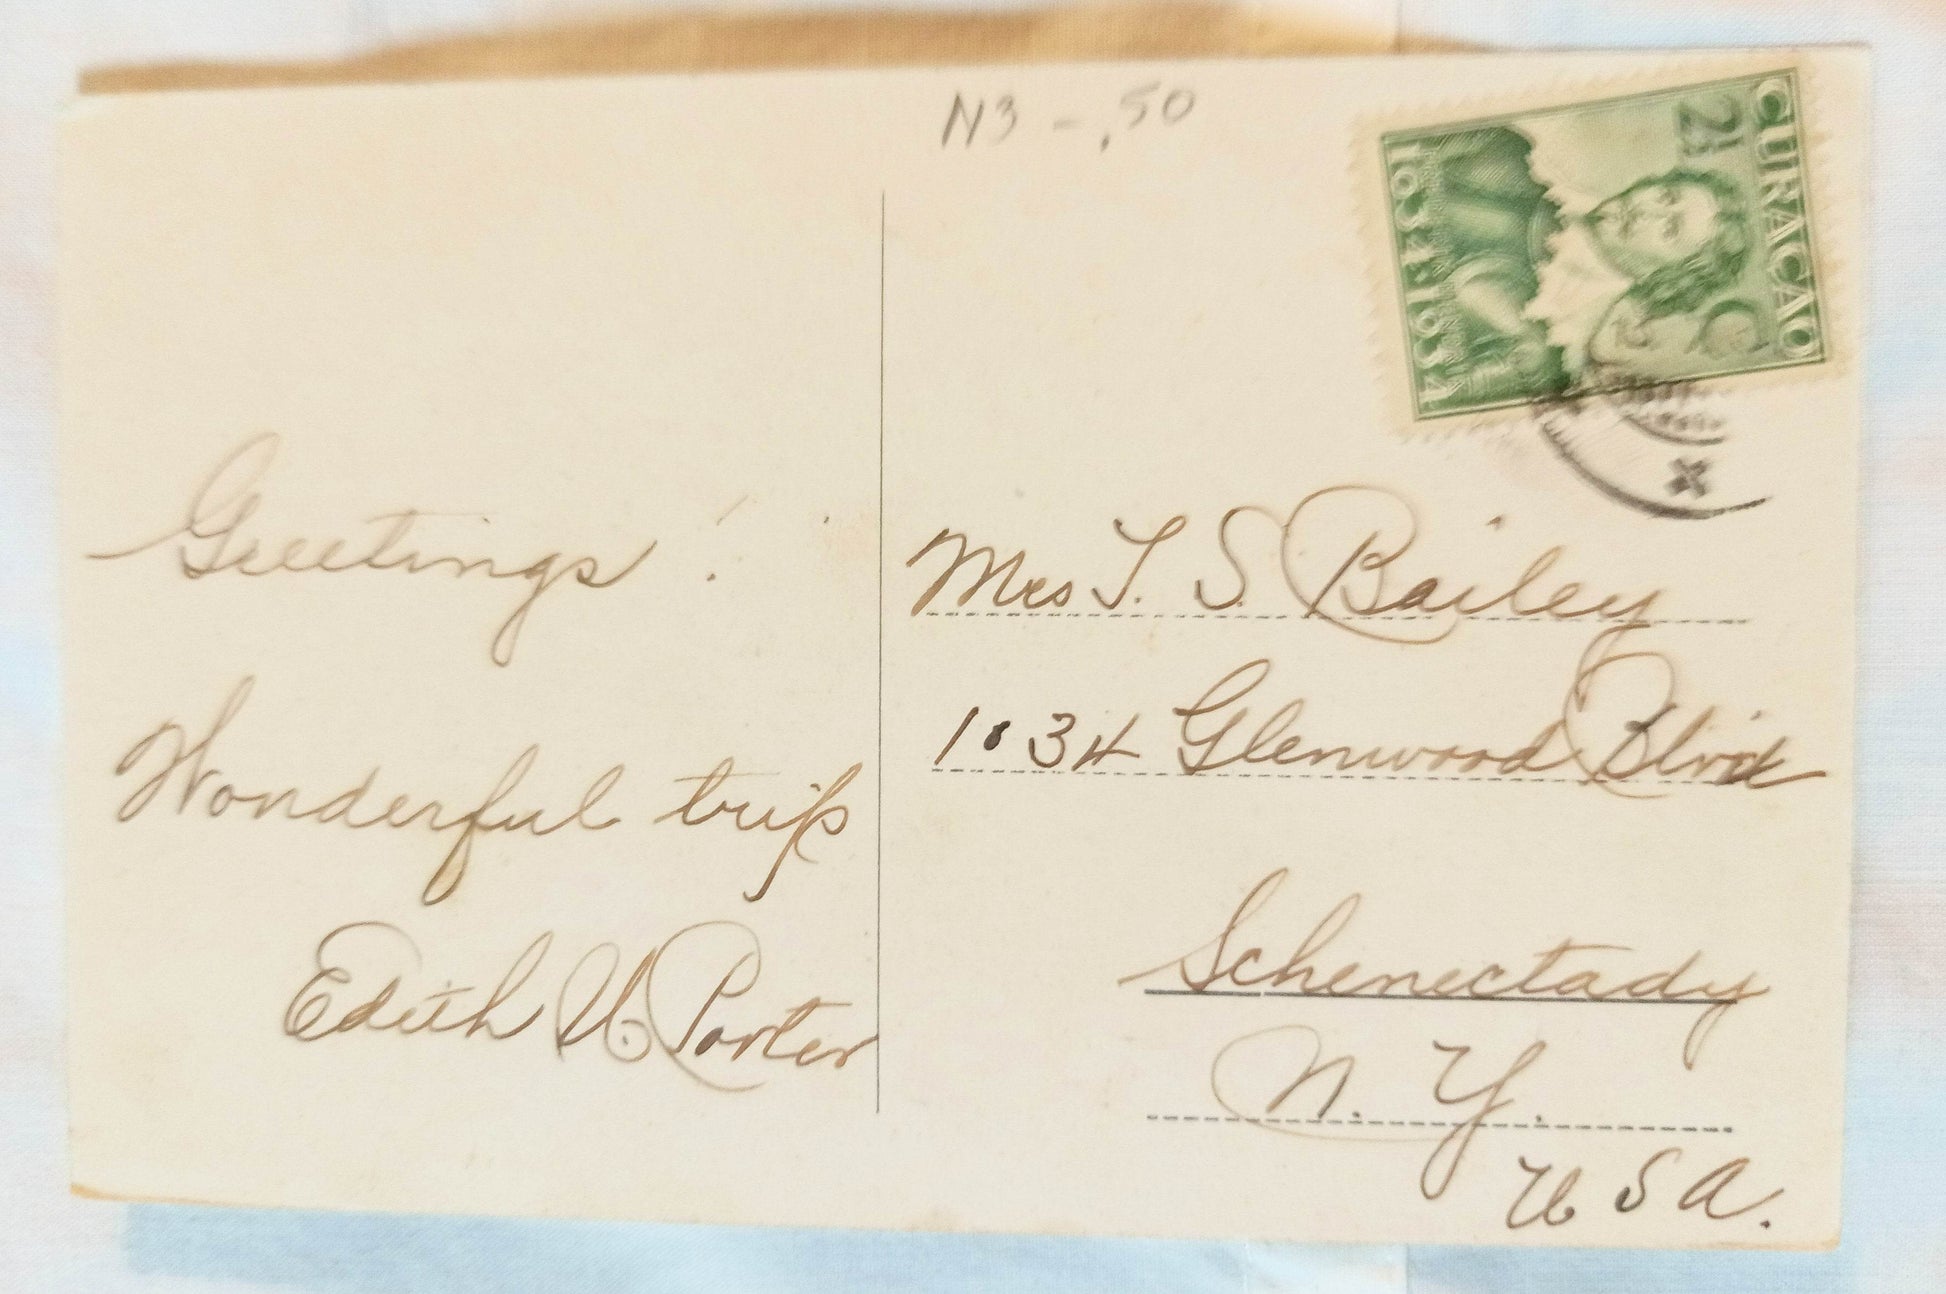 N3 - .50
CURAÇAO
2½
C
1634·1934
Greetings!
Wonderful trip
Edith W Porter
Mrs T. S. Bailey
1034 Glenwood Blvd
Schenectady
N. Y.
U S A.